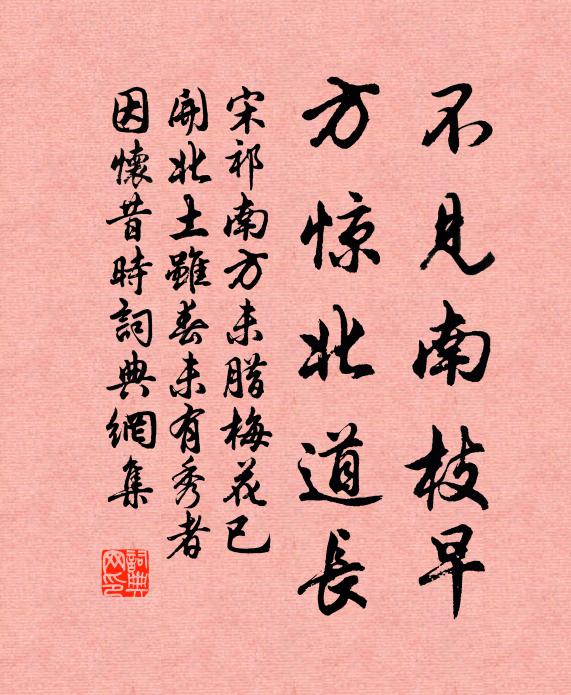 不见南枝早
方惊北道長
宋祁南方未腊梅花已
開北土雖春未有秀者
因懷昔時詞典網集
詞典网印